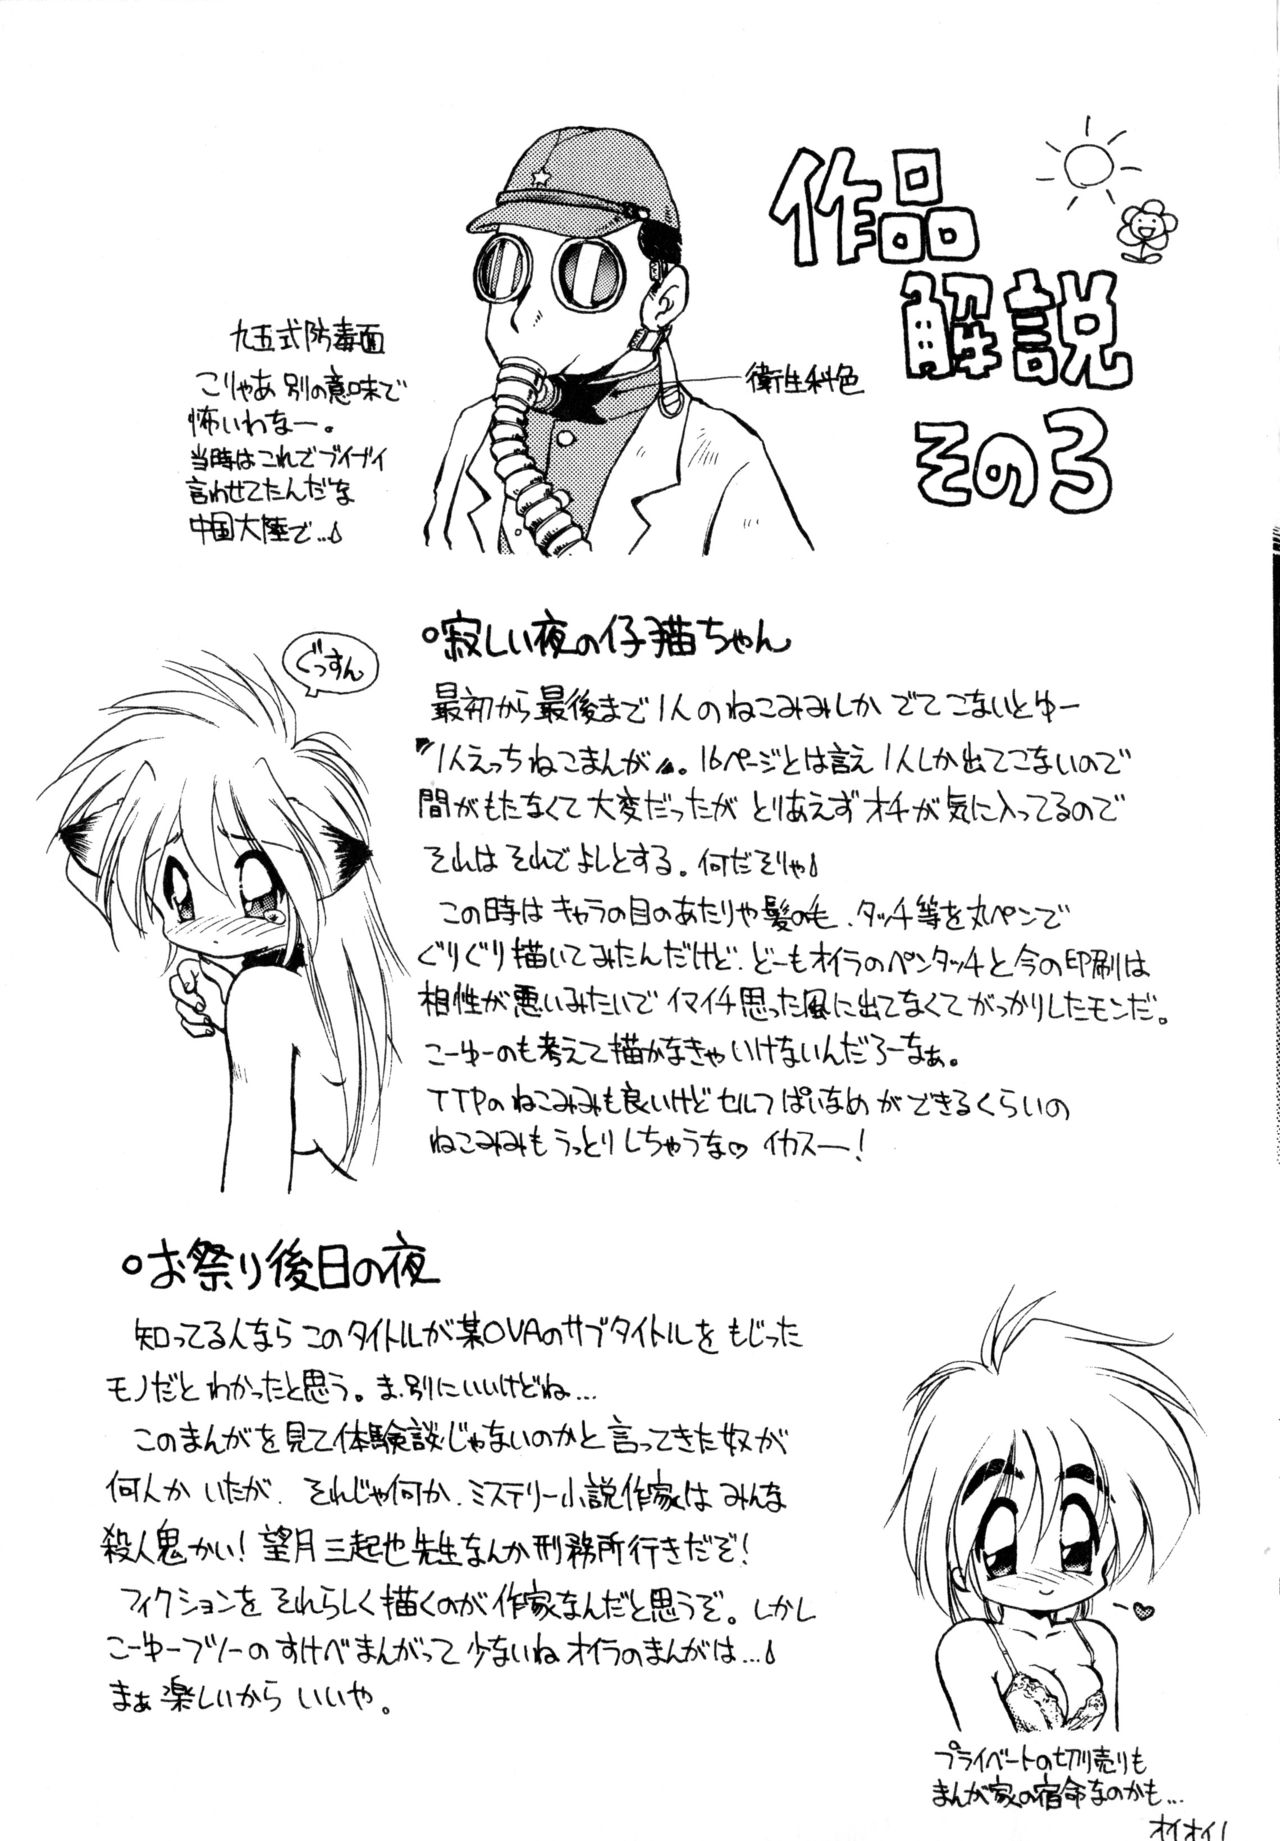 作品
解説
その3
九五式防毒面
こりゃあ別の意味で
怖いわなー。
当時はこれでブイブイ
言わせてたんだな
中国大陸で…
衛生科色
ぐっすん
°寂しい夜の仔猫ちゃん
最初から最後まで1人のねこみみしかでてこないとゆー
〝1人えっちねこまんが〟。16ページとは言え1人しか出てこないので
間がもたなくて大変だったがとりあえずオチが気に入ってるので
それはそれでよしとする。何だそりゃ
この時はキャラの目のあたりや髪の毛、タッチ等を丸ペンで
ぐりぐり描いてみたんだけど、どーもオイラのペンタッチと今の印刷は
相性が悪いみたいでイマイチ思った風に出てなくてがっかりしたモンだ。
こーゆーのも考えて描かなきゃいけないんだろーなぁ。
TTPのねこみみも良いけどセルフぱいなめができるくらいの
ねこみみもうっとりしちゃうな♡イカスー!
°お祭り後日の夜
知ってる人ならこのタイトルが某OVAのサブタイトルをもじった
モノだとわかったと思う。ま、別にいいけどね…
このまんがを見て体験談じゃないのかと言ってきた奴が
何人かいたが、それじゃ何か、ミステリー小説作家はみんな
殺人鬼かい!望月三起也先生なんか刑務所行きだぞ!
フィクションをそれらしく描くのが作家なんだと思うぞ。しかし
こーゆーフツーのすけべまんがって少ないねオイラのまんがは…
まぁ楽しいからいいや。
プライベートの切り売りも
まんが家の宿命なのかも…
オイオイ!